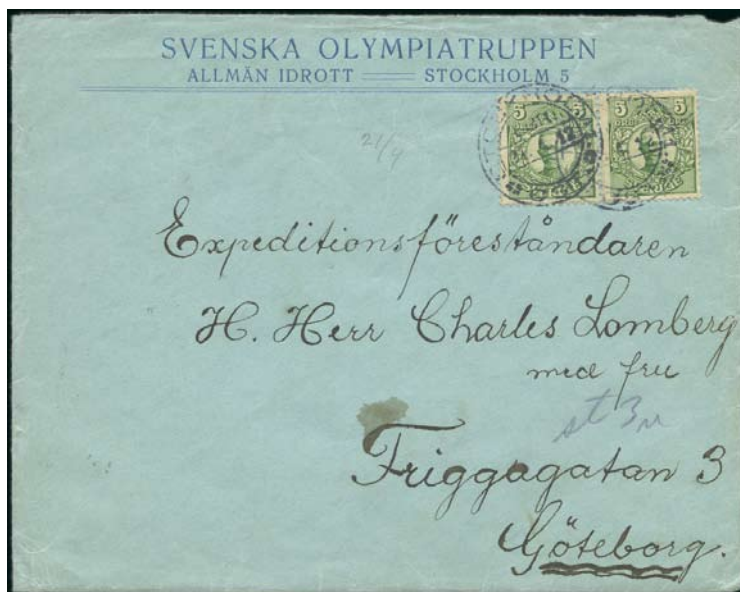 SVENSKA OLYMPIATRUPPEN
ALLMÄN IDROTT STOCKHOLM 5
5 5 5 5
21/4
Expeditionsföreståndaren
H. Herr Charles Lomberg
med fru
st 3
Friggagatan 3
Göteborg.